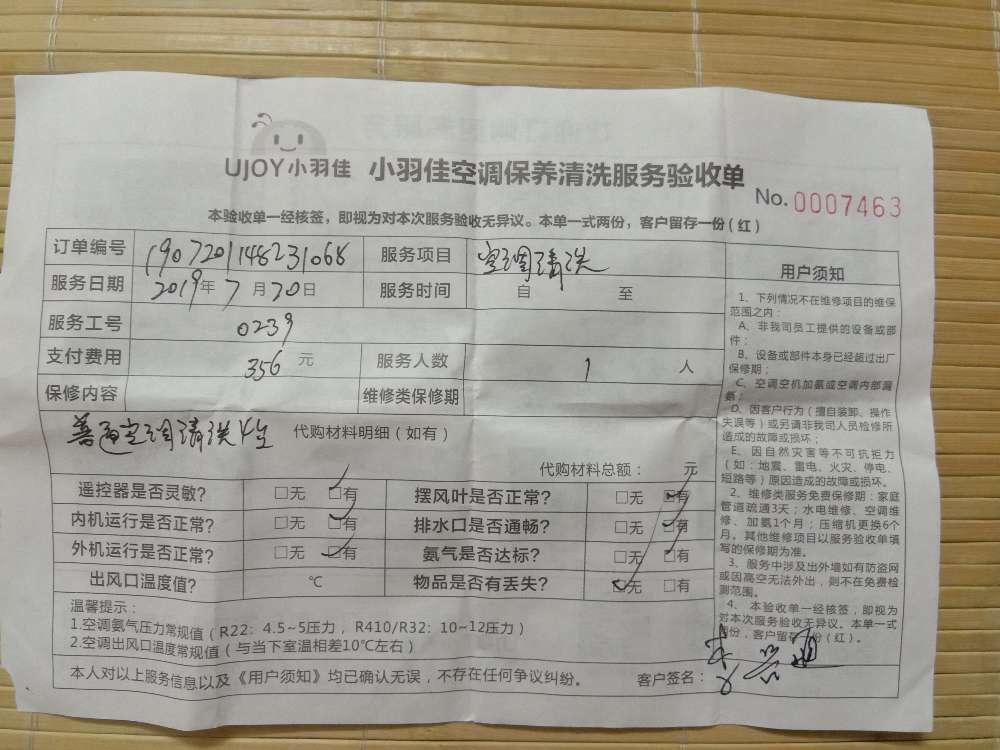 UJOY小羽佳 小羽佳空调保养清洗服务验收单
No. 0007463
本验收单一经核签，即视为对本次服务验收无异议。本单一式两份，客户留存一份（红）
订单编号 1907201148231068 服务项目 空调清洗
服务日期 2019年7月20日 服务时间 自 至
服务工号 0239
支付费用 356 元 服务人数 1 人
保修内容 维修类保修期
普通空调清洗4台 代购材料明细（如有）
代购材料总额： 元
遥控器是否灵敏？ □无 □有 摆风叶是否正常？ □无 □有
内机运行是否正常？ □无 □有 排水口是否通畅？ □无 □有
外机运行是否正常？ □无 □有 氨气是否达标？ □无 □有
出风口温度值？ ℃ 物品是否有丢失？ □无 □有
温馨提示：
1.空调氨气压力常规值（R22：4.5~5压力，R410/R32：10~12压力）
2.空调出风口温度常规值（与当下室温相差10℃左右）
本人对以上服务信息以及《用户须知》均已确认无误，不存在任何争议纠纷。 客户签名：
用户须知
1、下列情况不在维修项目的维保
范围之内：
A、非我司员工提供的设备或部
件；
B、设备或部件本身已经超过出厂
保修期；
C、空调空机加氨或空调内部漏
氨；
D、因客户行为（擅自装卸、操作
失误等）或另请非我司人员检修所
造成的故障或损坏；
E、因自然灾害等不可抗拒力
（如：地震、雷电、火灾、停电、
短路等）原因造成的故障或损坏。
2、维修类服务免费保修期：家庭
管道疏通3天；水电维修、空调维
修、加氨1个月；压缩机更换6个
月。其他维修项目以服务验收单填
写的保修期为准。
3、服务中涉及出外墙如有防盗网
或因高空无法外出，则不在免费检
测范围。
4、本验收单一经核签，即视为
对本次服务验收无异议。本单一式
两份，客户留存一份（红）。